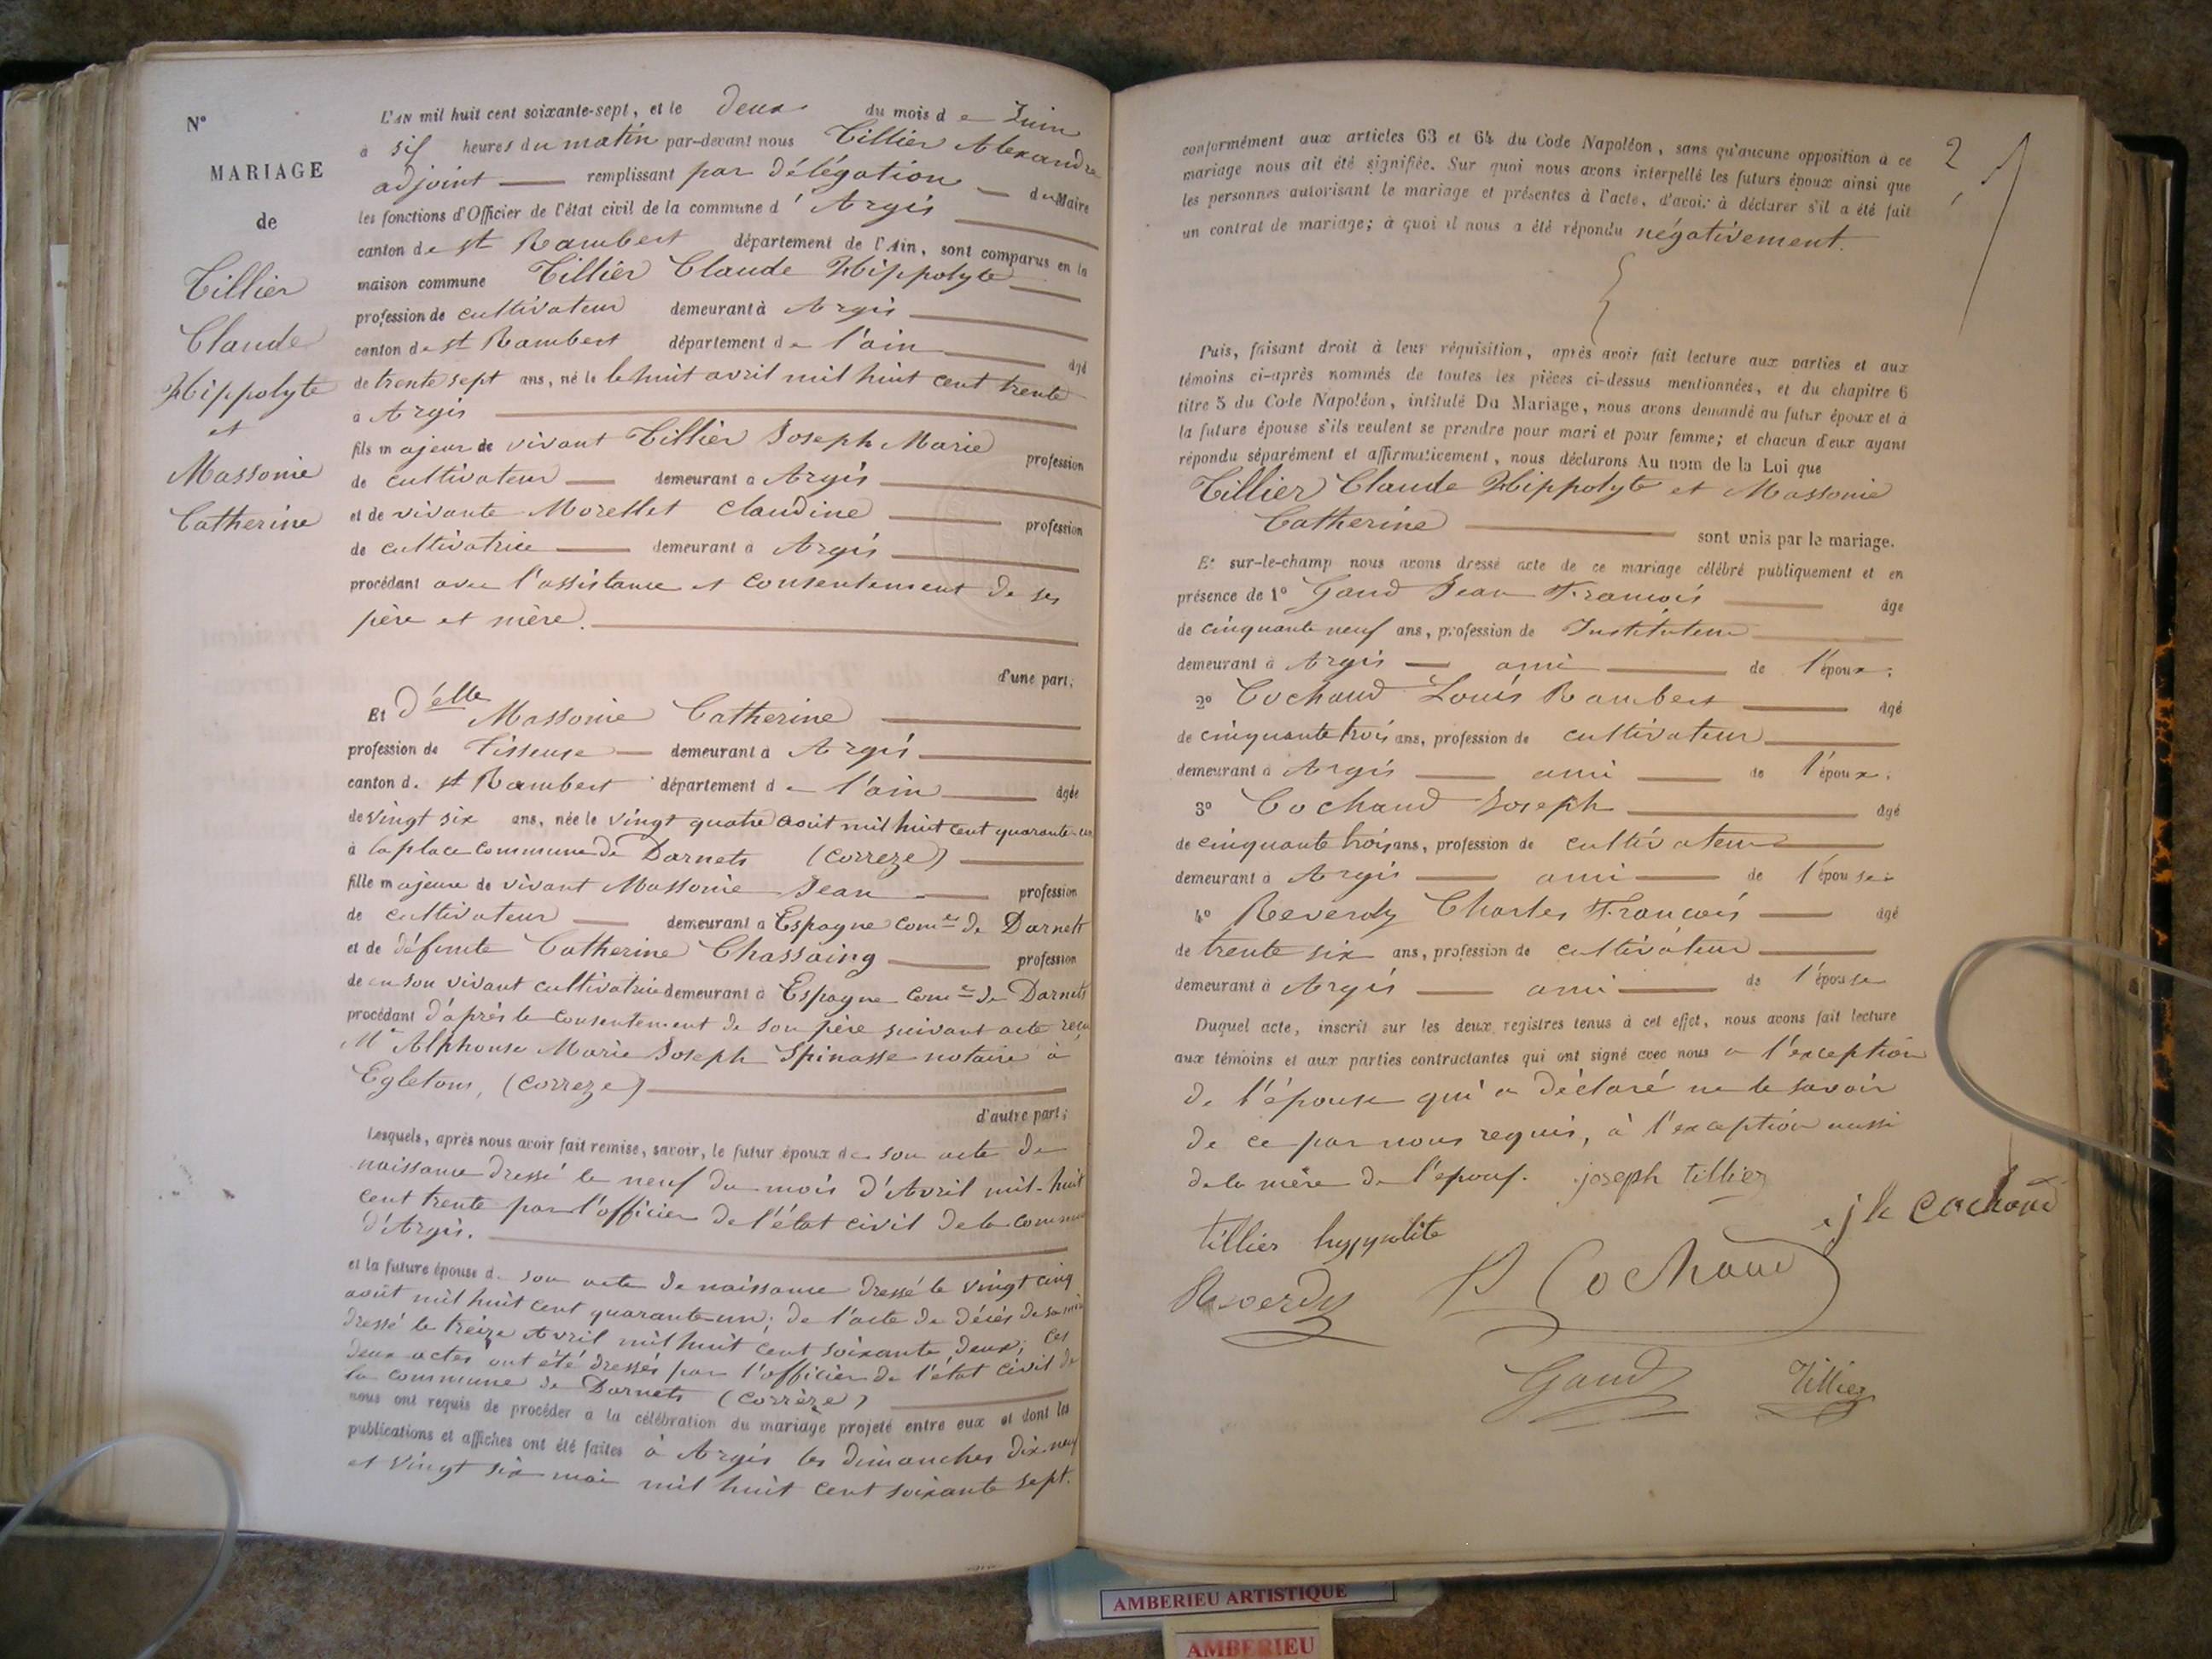 N°
MARIAGE
de
Tillier
Claude
Hippolyte
et
Massonie
Catherine
L'AN mil huit cent soixante-sept, et le deux du mois de Juin
à six heures du matin par-devant nous Tillier Alexandre
adjoint remplissant par délégation du Maire
les fonctions d'Officier de l'état civil de la commune d'Argis
canton de st Rambert département de l'Ain, sont comparus en la
maison commune Tillier Claude Hippolyte
profession de cultivateur demeurant à Argis
canton de st Rambert département de l'ain âgé
de trente sept ans, né le le huit avril mil huit cent trente
à Argis
fils majeur de vivant Tillier Joseph Marie profession
de cultivateur demeurant à Argis
et de vivante Morellet Claudine profession
de cultivatrice demeurant à Argis
procédant avec l'assistance et consentement de ses
père et mère.
d'une part;
Et d'elle Massonie Catherine
profession de Tisseuse demeurant à Argis
canton de st Rambert département de l'ain âgée
de vingt six ans, née le vingt quatre aout mil huit cent quarante-un
à la place commune de Darnets (correze)
fille majeure de vivant Massonie Jean profession
de cultivateur demeurant à Espagne com.ne de Darnets
et de défunte Catherine Chassaing profession
de en son vivant cultivatrice demeurant à Espagne com.ne de Darnets
procédant d'après le consentement de son père suivant acte reçu
Me Alphonse Marie Joseph Spinasse notaire à
Egletons, (correze)
d'autre part;
Lesquels, après nous avoir fait remise, savoir, le futur époux de son acte de
naissance dressé le neuf du mois d'Avril mil-huit
cent trente par l'officier de l'état civil de la commune
d'Argis.
et la future épouse de son acte de naissance dressé le vingt cinq
août mil huit cent quarante-un; de l'acte de décès de sa mère
dressé le treize Avril mil huit cent soixante deux; ces
deux actes ont été dressés par l'officier de l'état civil de
la commune de Darnets (corrèze)
nous ont requis de procéder à la célébration du mariage projeté entre eux et dont les
publications et affiches ont été faites à Argis les dimanches dix-neuf
et vingt six mai mil huit cent soixante sept.
conformément aux articles 63 et 64 du Code Napoléon, sans qu'aucune opposition à ce
mariage nous ait été signifiée. Sur quoi nous avons interpellé les futurs époux ainsi que
les personnes autorisant le mariage et présentes à l'acte, d'avoir à déclarer s'il a été fait
un contrat de mariage; à quoi il nous a été répondu négativement.
Puis, faisant droit à leur réquisition, après avoir fait lecture aux parties et aux
témoins ci-après nommés de toutes les pièces ci-dessus mentionnées, et du chapitre 6
titre 5 du Code Napoléon, intitulé Du Mariage, nous avons demandé au futur époux et à
la future épouse s'ils veulent se prendre pour mari et pour femme; et chacun d'eux ayant
répondu séparément et affirmativement, nous déclarons Au nom de la Loi que
Tillier Claude Hippolyte et Massonie
Catherine sont unis par le mariage.
Et sur-le-champ nous avons dressé acte de ce mariage célébré publiquement et en
présence de 1° Gaud Jean François âgé
de cinquante neuf ans, profession de Instituteur
demeurant à Argis ami de l'époux;
2° Cochaud Louis Rambert âgé
de cinquante trois ans, profession de cultivateur
demeurant à Argis ami de l'époux;
3° Cochaud Joseph âgé
de cinquante trois ans, profession de cultivateur
demeurant à Argis ami de l'épouse;
4° Reverdy Charles François âgé
de trente six ans, profession de cultivateur
demeurant à Argis ami de l'épouse
Duquel acte, inscrit sur les deux registres tenus à cet effet, nous avons fait lecture
aux témoins et aux parties contractantes qui ont signé avec nous à l'exception
de l'épouse qui a déclaré ne le savoir
de ce par nous requis, à l'exception aussi
de la mère de l'époux. joseph tillier
tillier hyppolite j h cochaud
Reverdy Cochaud
Gaud Tillier
AMBERIEU ARTISTIQUE
AMBERIEU